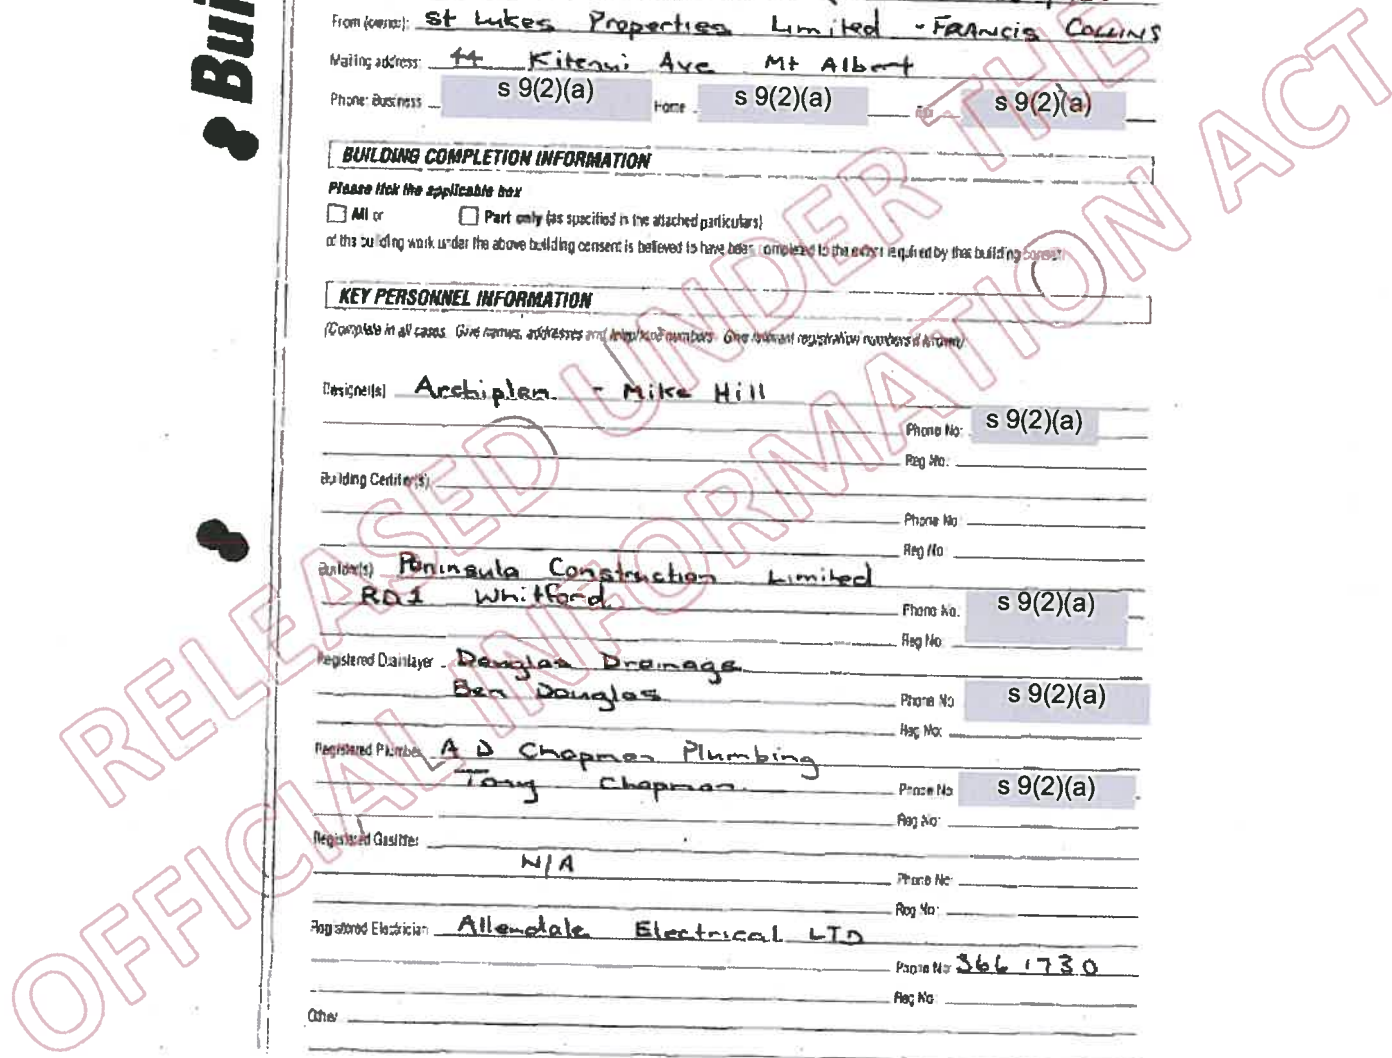 Buil
From (owner): St Lukes Properties Limited - FRANCIS COLLINS
Mailing address: 44 Kitenui Ave Mt Albert
Phone: Business s 9(2)(a) Home s 9(2)(a) s 9(2)(a)
BUILDING COMPLETION INFORMATION
Please tick the applicable box
All or Part only (as specified in the attached particulars)
of the building work under the above building consent is believed to have been completed to the extent required by that building consent
KEY PERSONNEL INFORMATION
(Complete in all cases. Give names, addresses and telephone numbers. Give relevant registration numbers if known)
Designer(s) Archiplan - Mike Hill
Phone No: s 9(2)(a)
Reg No:
Building Certifier(s)
Phone No:
Reg No:
Builder(s) Peninsula Construction Limited
RD1 Whitford
Phone No. s 9(2)(a)
Reg No:
Registered Drainlayer Douglas Drainage
Ben Douglas
Phone No s 9(2)(a)
Reg No:
Registered Plumber A D Chapman Plumbing
Tony Chapman
Phone No s 9(2)(a)
Reg No:
Registered Gasfitter
N/A
Phone No:
Reg No:
Registered Electrician Allendale Electrical LTD
Phone No: 366 1730
Reg No:
Other
RELEASED UNDER THE
OFFICIAL INFORMATION ACT